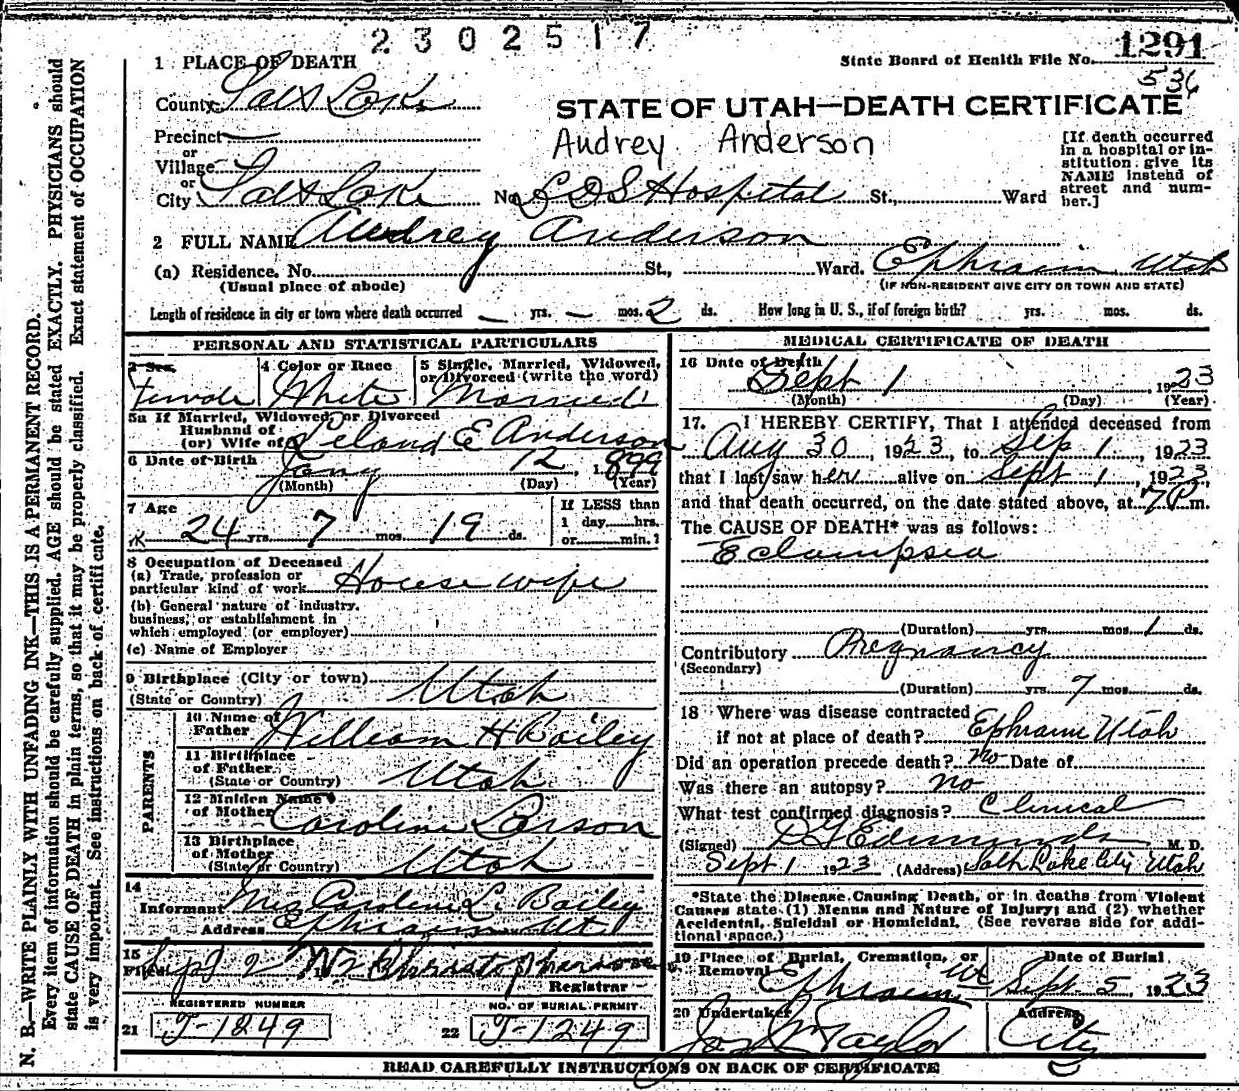 2302517
1291
State Board of Health File No.
536
1 PLACE OF DEATH
County Salt Lake
STATE OF UTAH—DEATH CERTIFICATE
Audrey Anderson
Precinct —
or
Village
or
City Salt Lake No. LDS Hospital St., Ward
[If death occurred
in a hospital or in-
stitution give its
NAME instead of
street and num-
ber.]
2 FULL NAME Audrey Anderson
(a) Residence. No. St., Ward. Ephraim, Utah
(Usual place of abode) (IF NON-RESIDENT GIVE CITY OR TOWN AND STATE)
Length of residence in city or town where death occurred — yrs. — mos. 2 ds. How long in U. S., if of foreign birth? yrs. mos. ds.
PERSONAL AND STATISTICAL PARTICULARS
3 Sex 4 Color or Race 5 Single, Married, Widowed,
or Divorced (write the word)
Female White Married
5a If Married, Widowed, or Divorced
Husband of
(or) Wife of Leland E Anderson
6 Date of Birth Jany 12, 1899
(Month) (Day) (Year)
7 Age
24 yrs. 7 mos. 19 ds.
If LESS than
1 day hrs.
or min.?
8 Occupation of Deceased
(a) Trade, profession or
particular kind of work House wife
(b) General nature of industry,
business, or establishment in
which employed (or employer)
(c) Name of Employer
9 Birthplace (City or town)
(State or Country) Utah
PARENTS
10 Name of
Father William H Bailey
11 Birthplace
of Father
(State or Country) Utah
12 Maiden Name
of Mother Caroline Larson
13 Birthplace
of Mother
(State or Country) Utah
14
Informant Mrs Caroline L. Bailey
Address Ephraim Ut
15
Filed Sept 2
Registrar
REGISTERED NUMBER NO. OF BURIAL PERMIT
21 J-1249 22 J-1249
MEDICAL CERTIFICATE OF DEATH
16 Date of Death
Sept 1 1923
(Month) (Day) (Year)
17. I HEREBY CERTIFY, That I attended deceased from
Aug 30, 1923, to Sep 1, 1923
that I last saw her alive on Sept 1, 1923,
and that death occurred, on the date stated above, at 7 P. m.
The CAUSE OF DEATH* was as follows:
Eclampsea
(Duration) yrs. mos. 1 ds.
Contributory Pregnancy
(Secondary)
(Duration) yrs. 7 mos. ds.
18 Where was disease contracted
if not at place of death? Ephraim Utah
Did an operation precede death? no Date of
Was there an autopsy? no
What test confirmed diagnosis? Clinical
(Signed) D G Edmunds M. D.
Sept 1 1923 (Address) Salt Lake City Utah
*State the Disease Causing Death, or in deaths from Violent
Causes state (1) Menns and Nature of Injury; and (2) whether
Accidental, Suicidal or Homicidal. (See reverse side for addi-
tional space.)
19 Place of Burial, Cremation, or
Removal Ephraim Ut
Date of Burial
Sept 5, 1923
20 Undertaker Address
Taylor City
READ CAREFULLY INSTRUCTIONS ON BACK OF CERTIFICATE
N. B.—WRITE PLAINLY WITH UNFADING INK—THIS IS A PERMANENT RECORD.
Every item of information should be carefully supplied. AGE should be stated EXACTLY. PHYSICIANS should
state CAUSE OF DEATH in plain terms, so that it may be properly classified. Exact statement of OCCUPATION
is very important. See instructions on back of certificate.